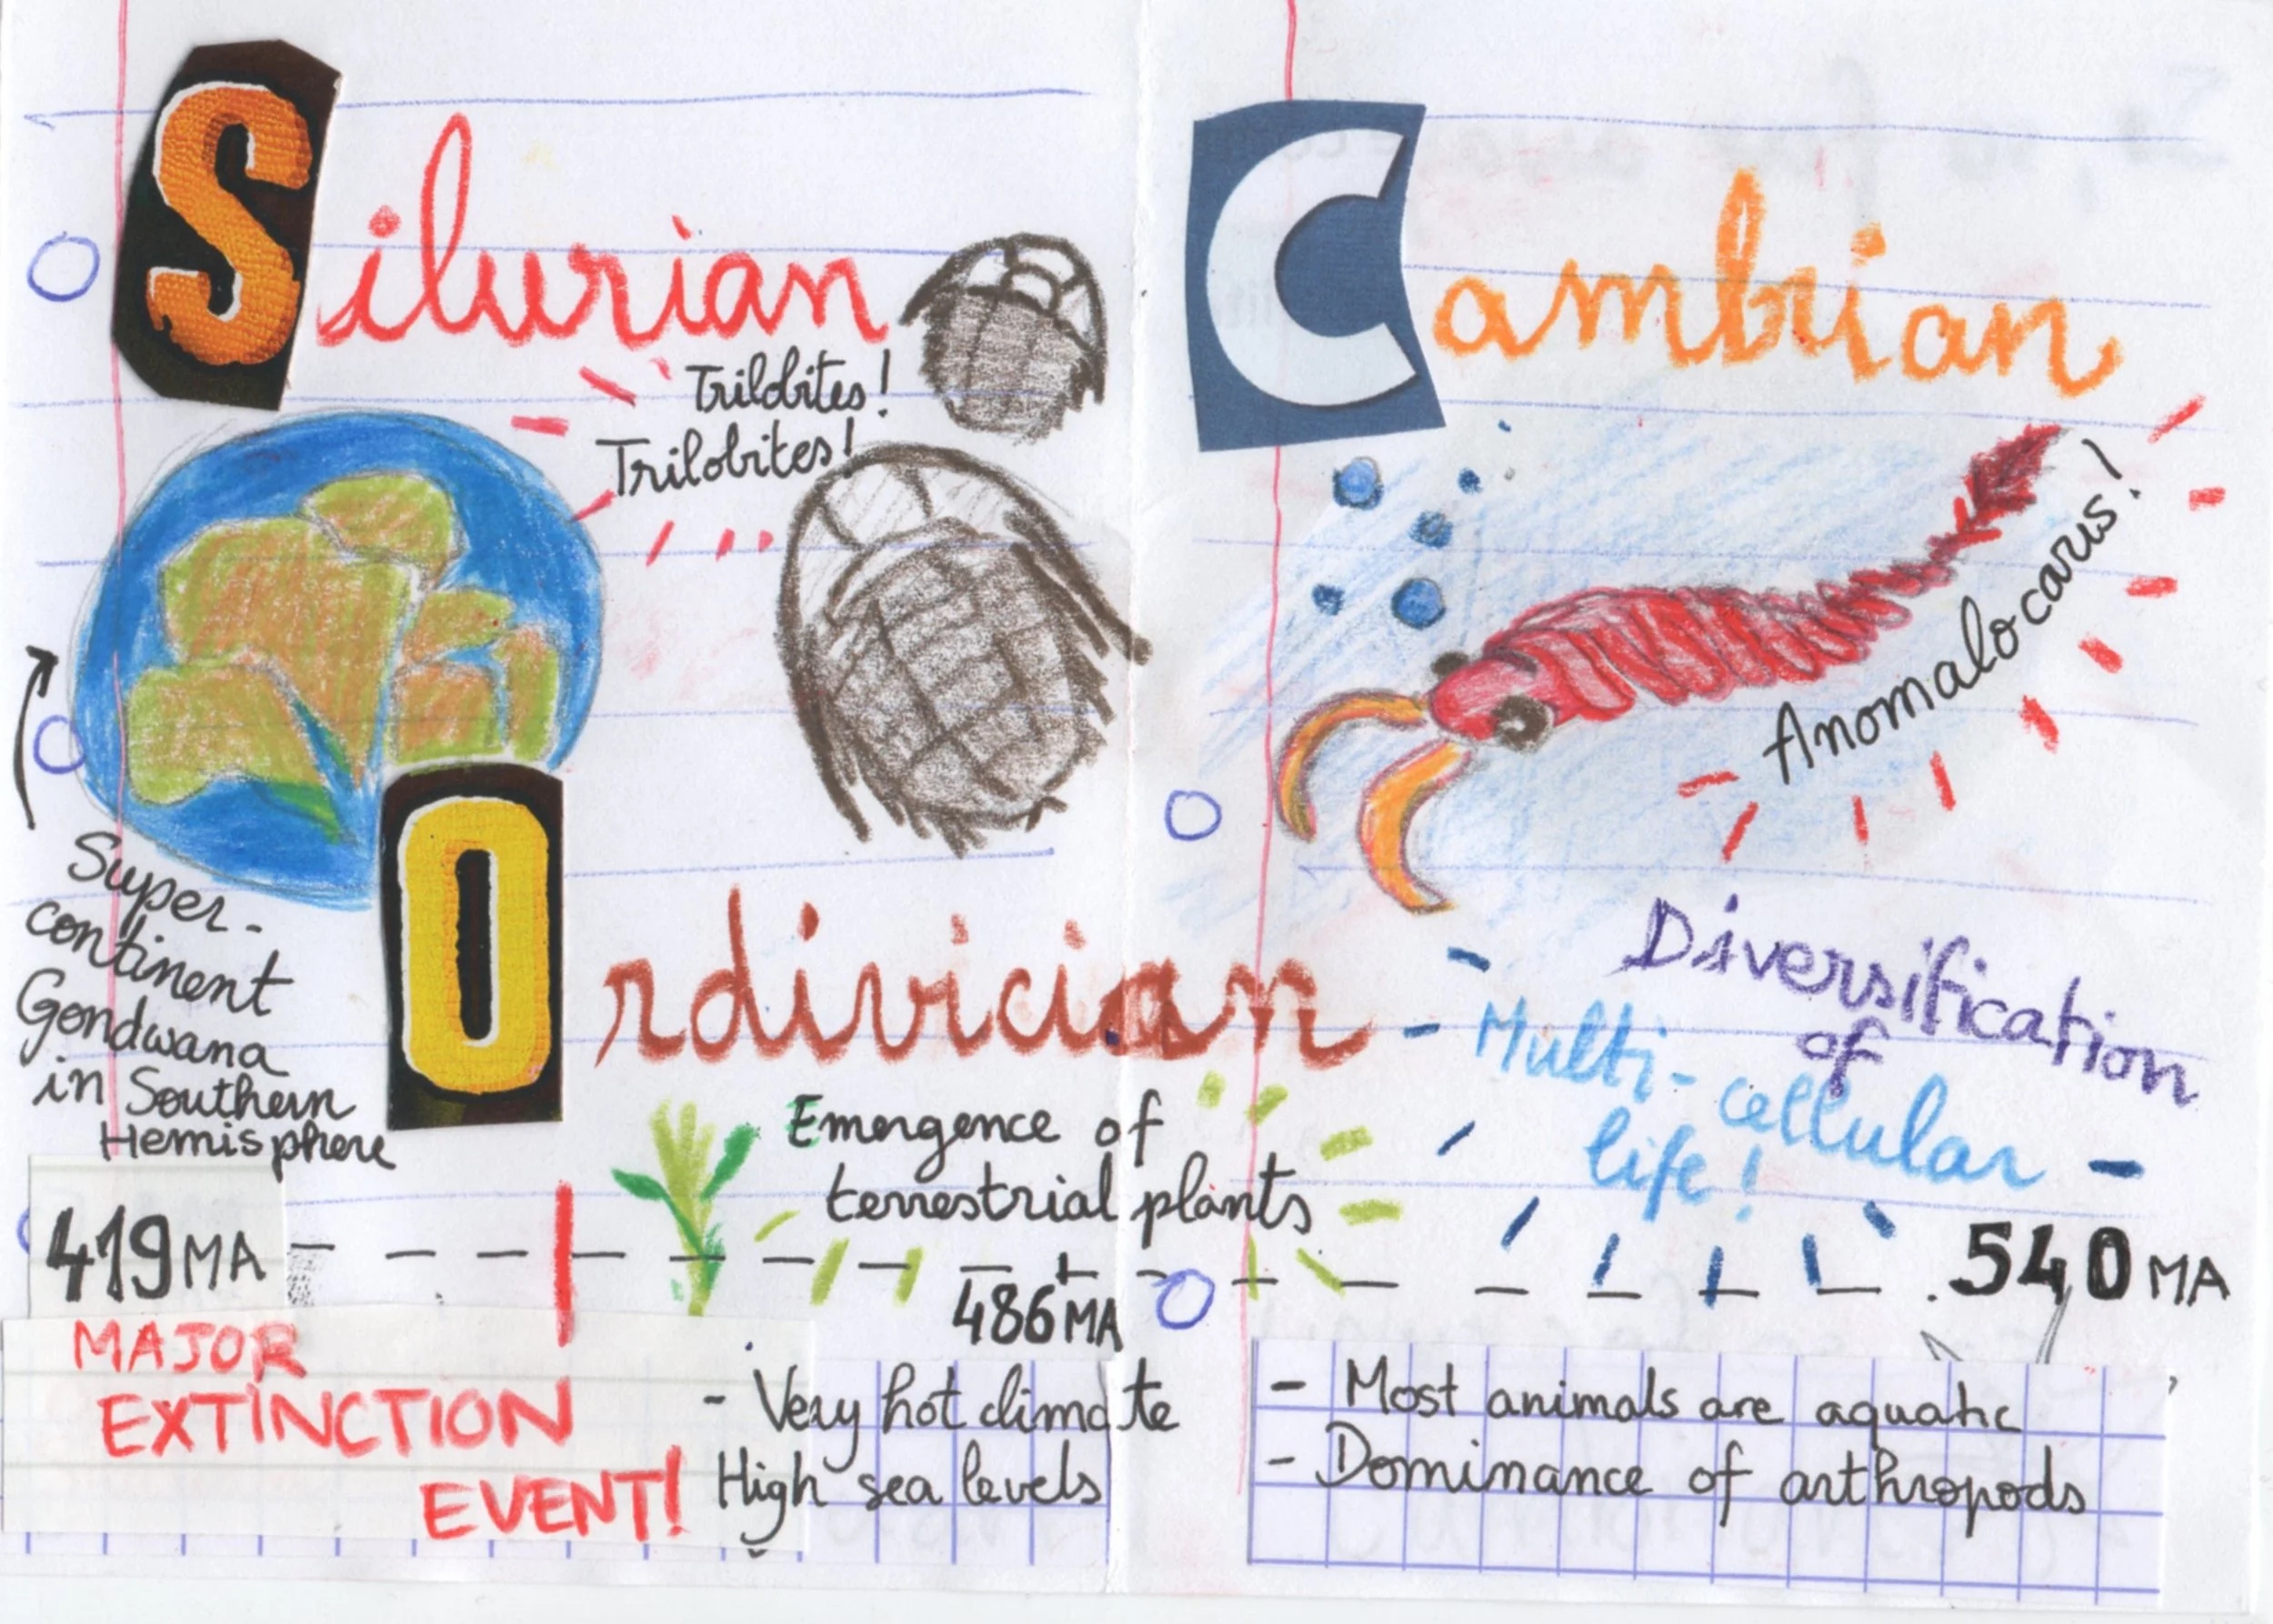 Silurian
Trilobites!
Trilobites!
Super-
continent
Gondwana
in Southern
Hemisphere
Ordivician
Emergence of
terrestrial plants
419 MA
486 MA
MAJOR
EXTINCTION
EVENT!
- Very hot climate
High sea levels
Cambrian
Anomalocarus!
Diversification
of
Multi-cellular
life!
540 MA
- Most animals are aquatic
- Dominance of arthropods